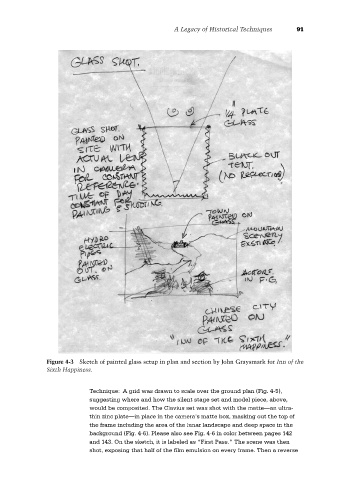 A Legacy of Historical Techniques 91
GLASS SHOT.
1/4" PLATE
GLASS
GLASS SHOT
PAINTED ON
SITE WITH
ACTUAL LENS
IN CAMERA
FOR CONSTANT
REFERENCE.
TIME OF DAY
CONSTANT FOR
PAINTING & SHOOTING
BLACK OUT
TENT.
(NO REFLECTIONS)
TOWN
PAINTED ON
GLASS.
MOUNTAIN
SCENERY
EXISTING!
HYDRO
ELECTRIC
PIPES
PAINTED
OUT. ON
GLASS
ACTORS.
IN F.G.
CHINESE CITY
PAINTED ON
GLASS
"INN OF THE SIXTH
HAPPINESS."
Figure 4-3 Sketch of painted glass setup in plan and section by John Graysmark for Inn of the
Sixth Happiness.
Technique: A grid was drawn to scale over the ground plan (Fig. 4-5),
suggesting where and how the silent stage set and model piece, above,
would be composited. The Clavius set was shot with the matte—an ultra-
thin zinc plate—in place in the camera's matte box, masking out the top of
the frame including the area of the lunar landscape and deep space in the
background (Fig. 4-6). Please also see Fig. 4-6 in color between pages 142
and 143. On the sketch, it is labeled as "First Pass." The scene was then
shot, exposing that half of the film emulsion on every frame. Then a reverse